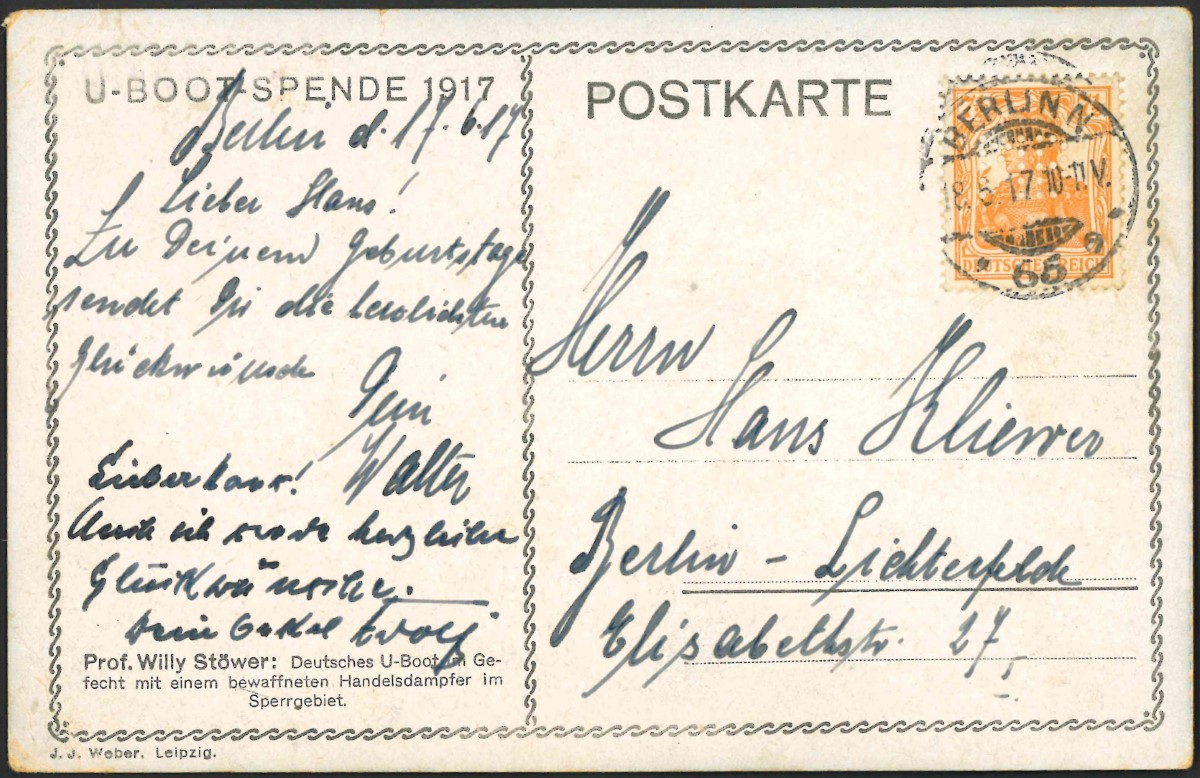 U-BOOT-SPENDE 1917
Berlin d. 17.6.17
Lieber Hans!
Zu Deinem Geburtstage
sendet Dir die herzlichsten
Glückwünsche
Dein
Walter
Lieber Hans!
Auch ich sende herzlichen
Glückwünsche.
Dein Onkel Adolf
Prof. Willy Stöwer: Deutsches U-Boot im Ge-
fecht mit einem bewaffneten Handelsdampfer im
Sperrgebiet.
J. J. Weber, Leipzig.
POSTKARTE
BERLIN N.
8.6.17.10-11V.
65
a
DEUTSCHES REICH
Herrn
Hans Kliewer
Berlin - Lichterfelde
Elisabethstr. 27